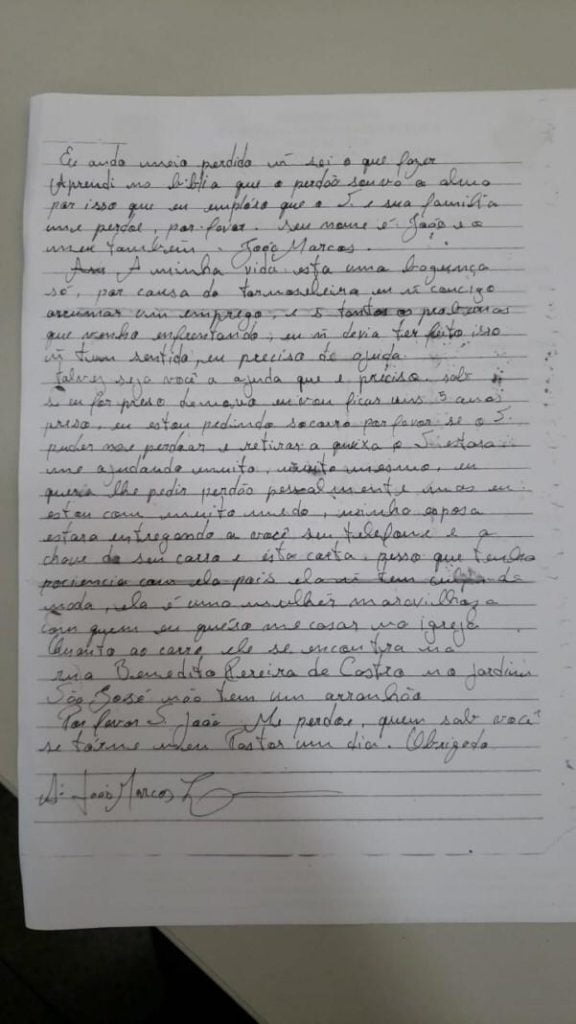 Eu ando meio perdido ñ sei o que fazer
Aprendi na biblia que o perdão sauva a alma
por isso que eu emplóro que o S. e sua familia
me perdoe, por favor. seu nome é João e o
meu também. João Marcos.
A minha vida esta uma bagunça
só, por causa da tornoseleira eu ñ concigo
arrumar um emprego, e S tantos os problemas
que venho enfrentando, eu ñ devia ter feito isso
ñ tem sentido, eu preciso de ajuda.
talvez seja você a ajuda que e preciso. sab
se eu for preso denovo eu vou ficar uns 5 anos
preso, eu estou pedindo socorro por favor se o S.
puder me perdoar e retirar a queixa o S estara
me ajudando muito, muito mesmo, eu
queria lhe pedir perdão pessoalmente mas eu
estou com muito medo, minha esposa
estara entregando a você seu telefone e a
chave do seu carro e esta carta. posso que tenha
paciencia com ela pois ela ñ tem culpa de
nada, ela é uma mulher maravilhoza
com quem eu quéro me casar na igreja
Quanto ao carro, ele se encontra na
rua Benedito Pereira de Castro no jardim
São José não tem um arranhão
Por favor S João Me perdoe, quem sab você
se torne meu Pastor um dia. Obrigado
As: João Marcos